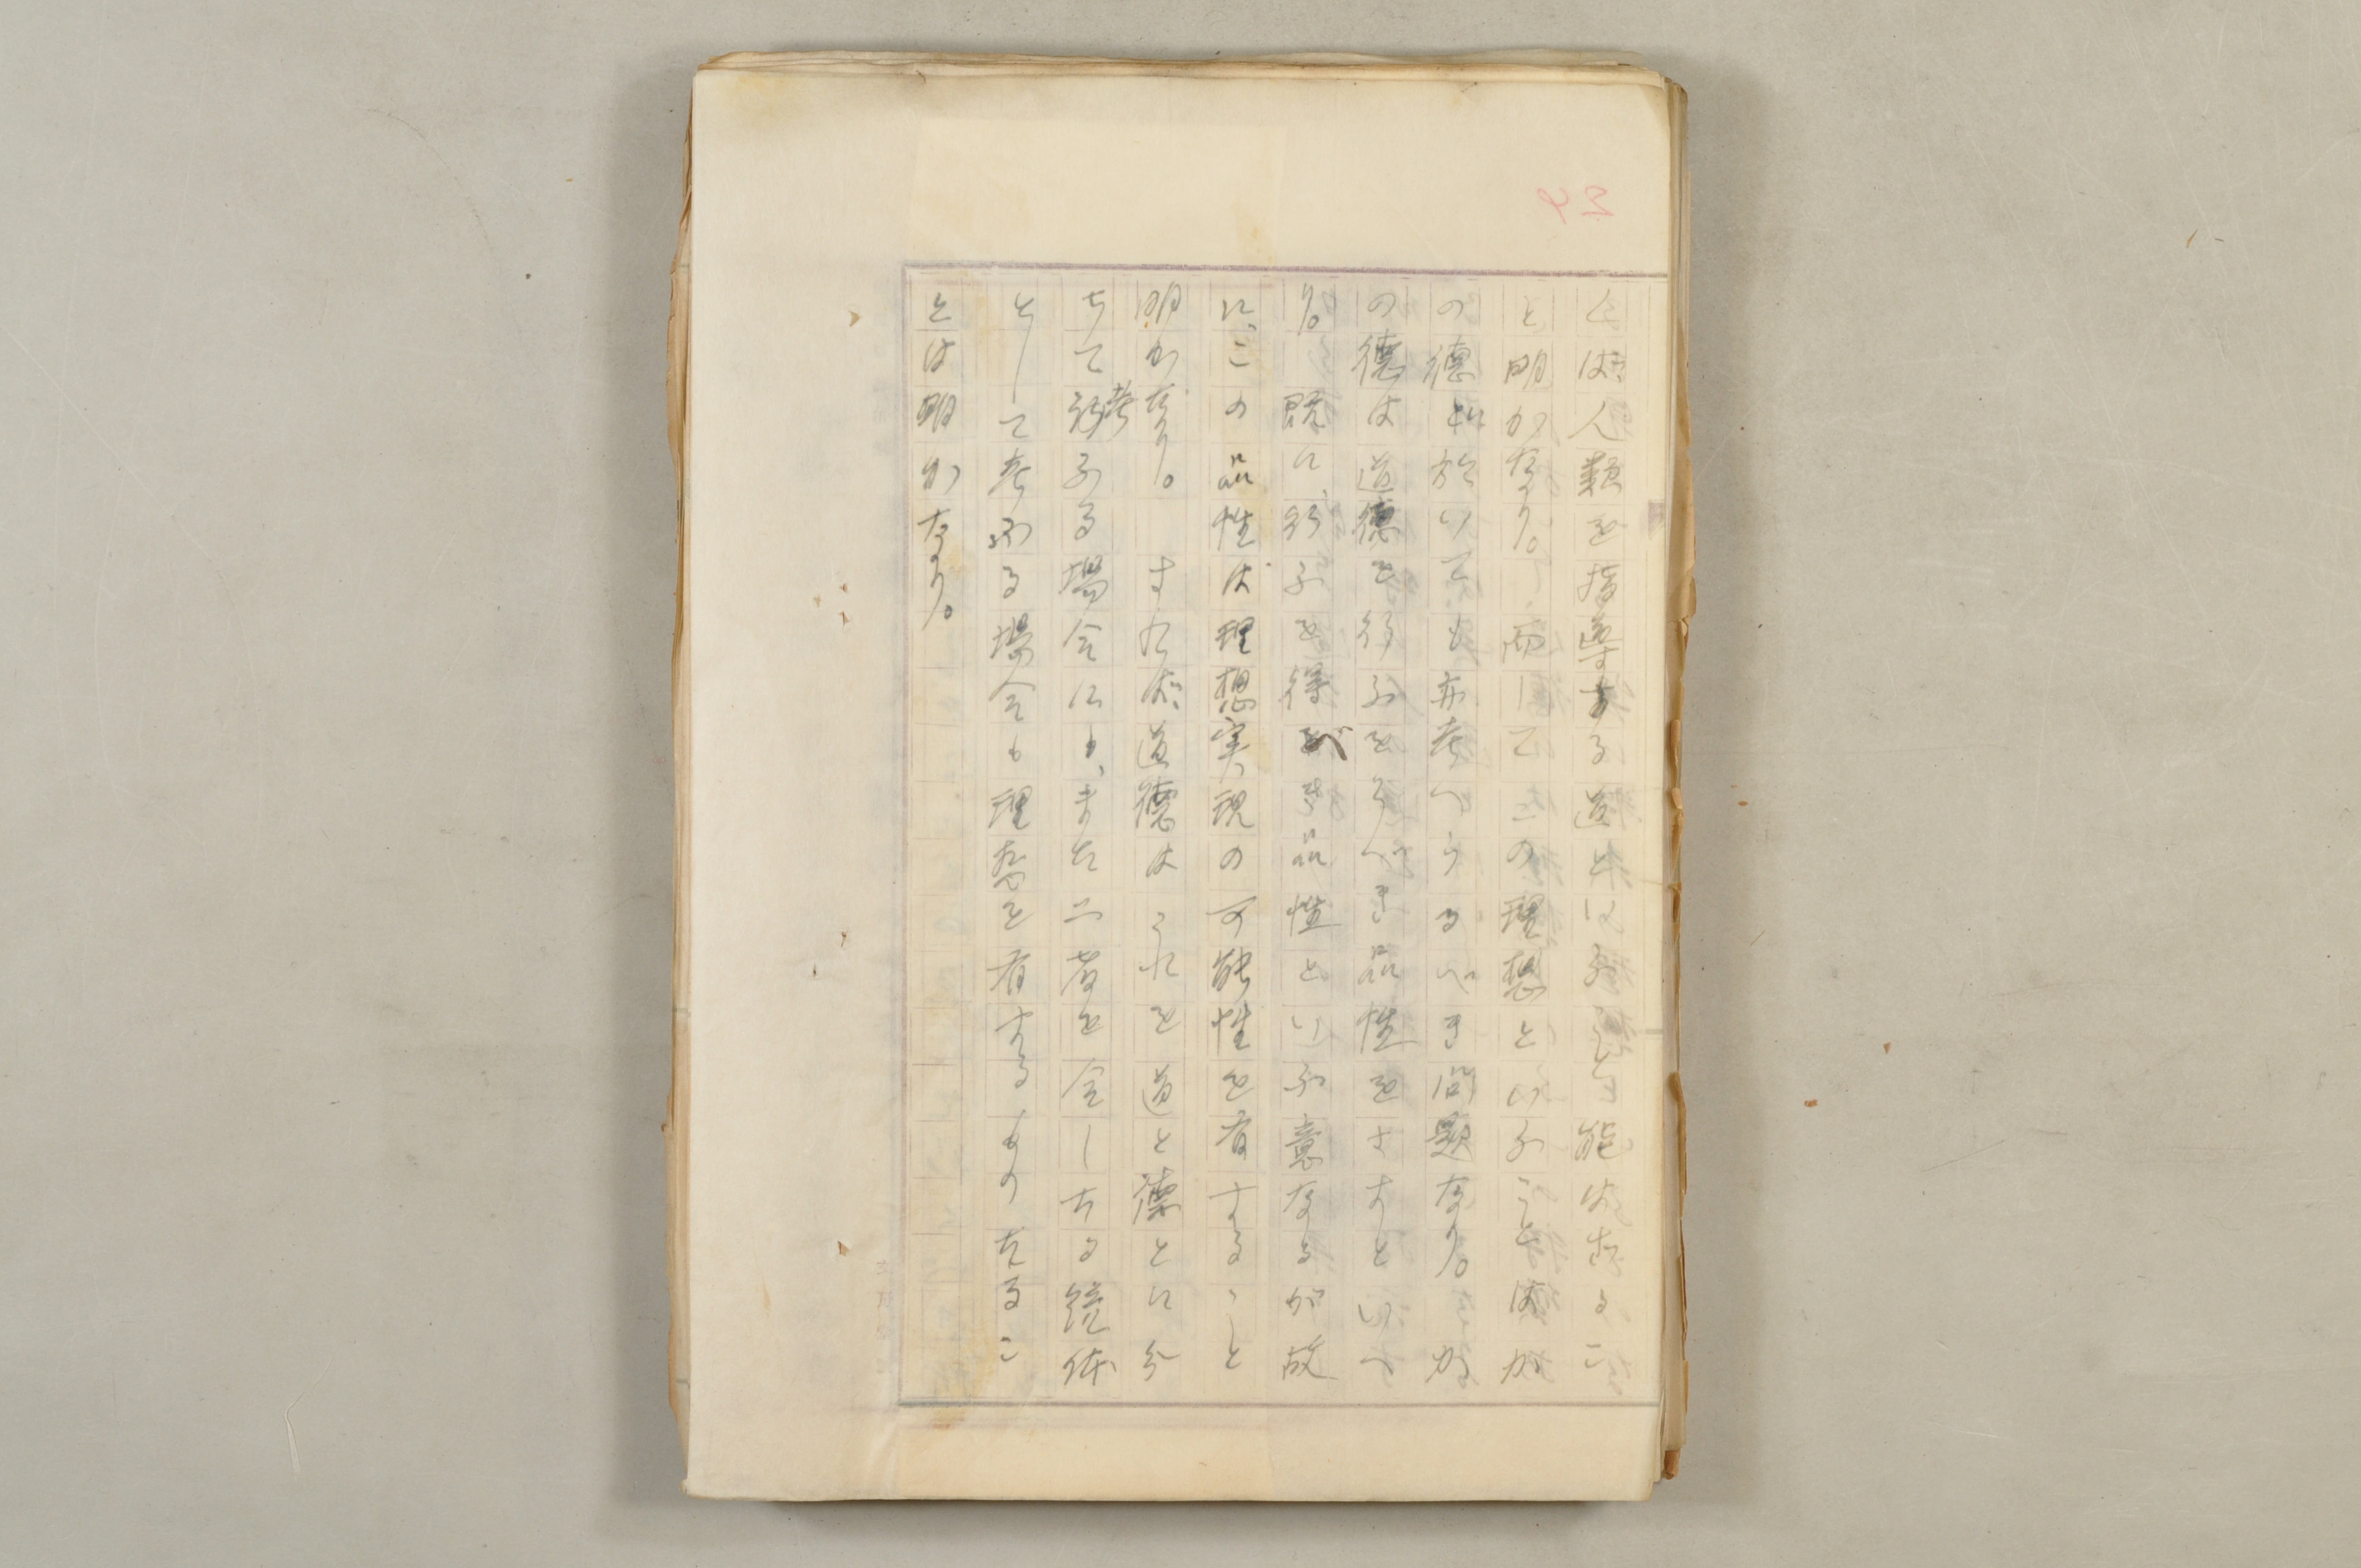 くば、人類を指導する道とはいふこと能はざるこ
と明かなり。而してこの理想といふことはか
の德に於いても亦考へうるべき問題なり。か
の德は道德を行ふをうべき品性をさすといへ
り。既に、行ふを得べき品性といふ意なるが故
に、この品性は理想実現の可能性を有すること
明かなり。すれば、道德はこれを道と德とに分
ちて考ふる場合にも、また二者を合したる統体
として考ふる場合も理想を有するものたるこ
とは明かなり。